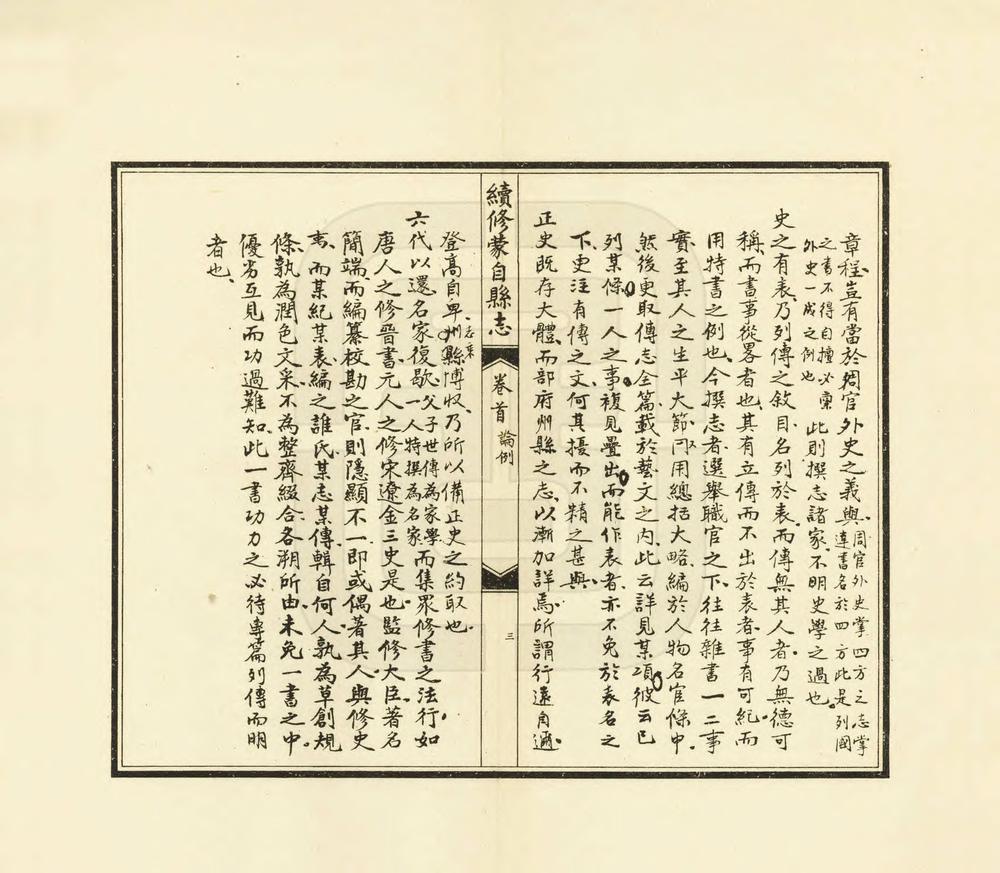 章程豈有當於周官外史之義與周官外史掌四方之志掌達書名於四方此是列國
之書不得自擅必稟外史一成之例也此則撰志諸家不明史學之過也
史之有表乃列傳之敘目名列於表而傳無其人者乃無德可
稱而書事從畧者也其有立傳而不出於表者事有可紀而
用特書之例也今撰志者選舉職官之下往往雜書一二事
實至其人之生平大節又用總括大略編於人物名宦條中
然後更取傳志全篇載於藝文之內此云詳見某項彼云已
列某條一人之事複見疊出而能作表者亦不免於表名之
下史注有傳之文何其擾而不精之甚與
正史既存大體而部府州縣之志以漸加詳焉所謂行遠自邇
續修蒙自縣志
卷首 論例
三
登高自卑州縣志乘博收乃所以備正史之約取也
六代以還名家復歇父子世傳為家學一人特撰為名家而集眾修書之法行如
唐人之修晉書元人之修宋遼金三史是也監修大臣著名
簡端而編纂校勘之官則隱顯不一即或偶著其人與修史
事而某紀某表編之誰氏某志某傳輯自何人孰為草創規
條孰為潤色文采不為整齊綴合各溯所由未免一書之中
優劣互見而功過難知此一書功力之必待專篇列傳而明
者也